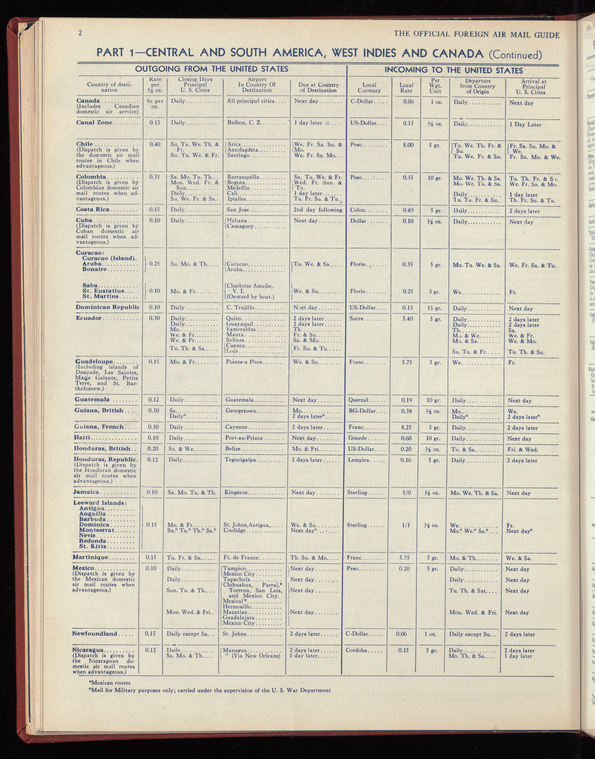 2 THE OFFICIAL FOREIGN AIR MAIL GUIDE
PART 1—CENTRAL AND SOUTH AMERICA, WEST INDIES AND CANADA (Continued)
OUTGOING FROM THE UNITED STATES INCOMING TO THE UNITED STATES
Country of desti-nation Rate per ½ oz. Closing Days Principal U. S. Cities Airport In Country Of Destination Due at Country of Destination Local Currency Local Rate Per Wgt. Unit Departure from Country of Origin Arrival at Principal U. S. Cities
Canada 6c per oz. Daily All principal cities Next day C-Dollar 0.06 1 oz. Daily Next day
(Includes Canadian
domestic air service)
Canal Zone 0.15 Daily Balboa, C. Z. 1 day later US-Dollar 0.15 ½ oz. Daily 1 Day Later
Chile 0.40 Su. Tu. We. Th. & Fr. Arica We. Fr. Sa. Su. & Mo. Peso 8.00 5 gr. Tu. We. Th. Fr. & Su. Fr. Sa. Su. Mo. & We.
(Dispatch is given by Antofagasta
the domestic air mail Su. Tu. We. & Fr. Santiago We. Fr. Sa. Mo. Tu. We. Fr. & Su. Fr. Sa. Mo. & We.
routes in Chile when
advantageous.)
Colombia 0.35 Sa. Mo. Tu. Th. Barranquilla Su. Tu. We. & Fr. Peso 0.35 10 gr. Mo. We. Th. & Sa. Tu. Th. Fr. & Su.
(Dispatch is given by Mon. Wed. Fr. & Sun. Bogota Wed. Fr. Sun. & Tu. Mo. We. Tu. & Sa. We. Fr. Su. & Mo.
Colombian domestic air Medellin
mail routes when ad- Daily Cali 1 day later Daily 1 day later
vantageous.) Su. We. Fr. & Sa. Ipiales Tu. Fr. Su. & Tu. Tu. Fr. & Su. Th. Fr. Su. & Tu.
Costa Rica 0.15 Daily San Jose 2nd day following Colon 0.40 5 gr. Daily 2 days later
Cuba 0.10 Daily Habana Next day Dollar 0.10 ½ oz. Daily Next day
(Dispatch is given by Camaguey
Cuban domestic air
mail routes when ad-
vantageous.)
Curacao:
Curacao (Island).
Aruba 0.25 Su. Mo. & Th. Curacao Tu. We. & Sa. Florin 0.35 5 gr. Mo. Tu. We. & Sa. We. Fr. Sa. & Tu.
Bonaire Aruba
Saba Charlotte Amalie,
St. Eustatius 0.10 Mo. & Fr. V. I. We. & Su. Florin 0.25 5 gr. We. Fr.
St. Martins (Onward by boat.)
Dominican Republic 0.10 Daily C. Trujillo Next day US-Dollar 0.15 15 gr. Daily Next day
Ecuador 0.30 Daily Quito 2 days later Sucre 3.40 5 gr. Daily 2 days later
Daily Guayaquil 2 days later Daily 2 days later
Mo. Esmeraldas Th. Th. Sa.
We. & Fr. Manta Fr. & Su. Mo. & We. We. & Fr.
We. & Fr. Salinas Sa. & Mo. Mo. & Sa. We. & Mo.
Tu. Th. & Sa. Cuenca Fr. Su. & Tu. Su. Tu. & Fr. Tu. Th. & Su.
Loja
Guadeloupe 0.15 Mo. & Fr. Pointe-a Pitre We. & Su. Franc 5.75 5 gr. We. Fr.
(Including islands of
Desirade, Les Saintes,
Marie Galante, Petite
Terre, and St. Bar-
tholomew.)
Guatemala 0.12 Daily Guatemala Next day Quetzal 0.19 10 gr. Daily Next day
Guiana, British 0.30 Sa. Georgetown Mo. BG-Dollar 0.38 ½ oz. Mo. We.
Daily* 2 days later* Daily* 2 days later*
Guiana, French 0.30 Daily Cayenne 2 days later Franc 8.25 5 gr. Daily 2 days later
Haiti 0.10 Daily Port-au-Prince Next day Gourde 0.60 10 gr. Daily Next day
Honduras, British 0.20 Sa. & We. Belize Mo. & Fri. US-Dollar 0.20 ½ oz. Tu. & Sa. Fri. & Wed.
Honduras, Republic. 0.12 Daily Tegucigalpa 2 days later Lempira 0.16 5 gr. Daily 2 days later
(Dispatch is given by
the Honduran domestic
air mail routes when
advantageous.)
Jamaica 0.10 Sa. Mo. Tu. & Th. Kingston Next day Sterling 1/0 ½ oz. Mo. We. Th. & Sa. Next day
Leeward Islands:
Antigua
Anguilla
Barbuda
Dominica 0.15 Mo. & Fr. St. Johns, Antigua We. & Su. Sterling 1/1 ½ oz. We. Fr.
Montserrat Su.* Tu.* Th.* Sa.* Coolidge Next day* Mo.* We.* Sa.* Next day*
Nevis
Redonda
St. Kitts
Martinique 0.15 Tu. Fr. & Sa. Ft. de France Th. Su. & Mo. Franc 5.75 5 gr. Mo. & Th. We. & Sa.
Mexico 0.10 Daily Tampico Next day Peso 0.20 5 gr. Daily Next day
(Dispatch is given by Mexico City
the Mexican domestic Daily Tapachula Next day Daily Next day
air mail routes when Chihuahua, Parral,*
advantageous.) Sun. Tu. & Th. Torreon, San Luis, Next day Tu. Th. & Sat. Next day
and Mexico City.
Mexical*
Hermosillo
Mon. Wed. & Fri. Mazatlan Next day Mon. Wed. & Fri. Next day
Guadalajara
Mexico City
Newfoundland 0.15 Daily except Sa. St. Johns 2 days later C-Dollar 0.06 1 oz. Daily except Su. 2 days later
Nicaragua 0.12 Daily Managua 2 days later Cordoba 0.15 5 gr. Daily 2 days later
(Dispatch is given by Sa. Mo. & Th. " (Via New Orleans) 1 day later Mo. Th. & Sa. 1 day later
the Nicaraguan do-
mestic air mail routes
when advantageous.)
*Mexican routes
*Mail for Military purposes only; carried under the supervision of the U. S. War Department